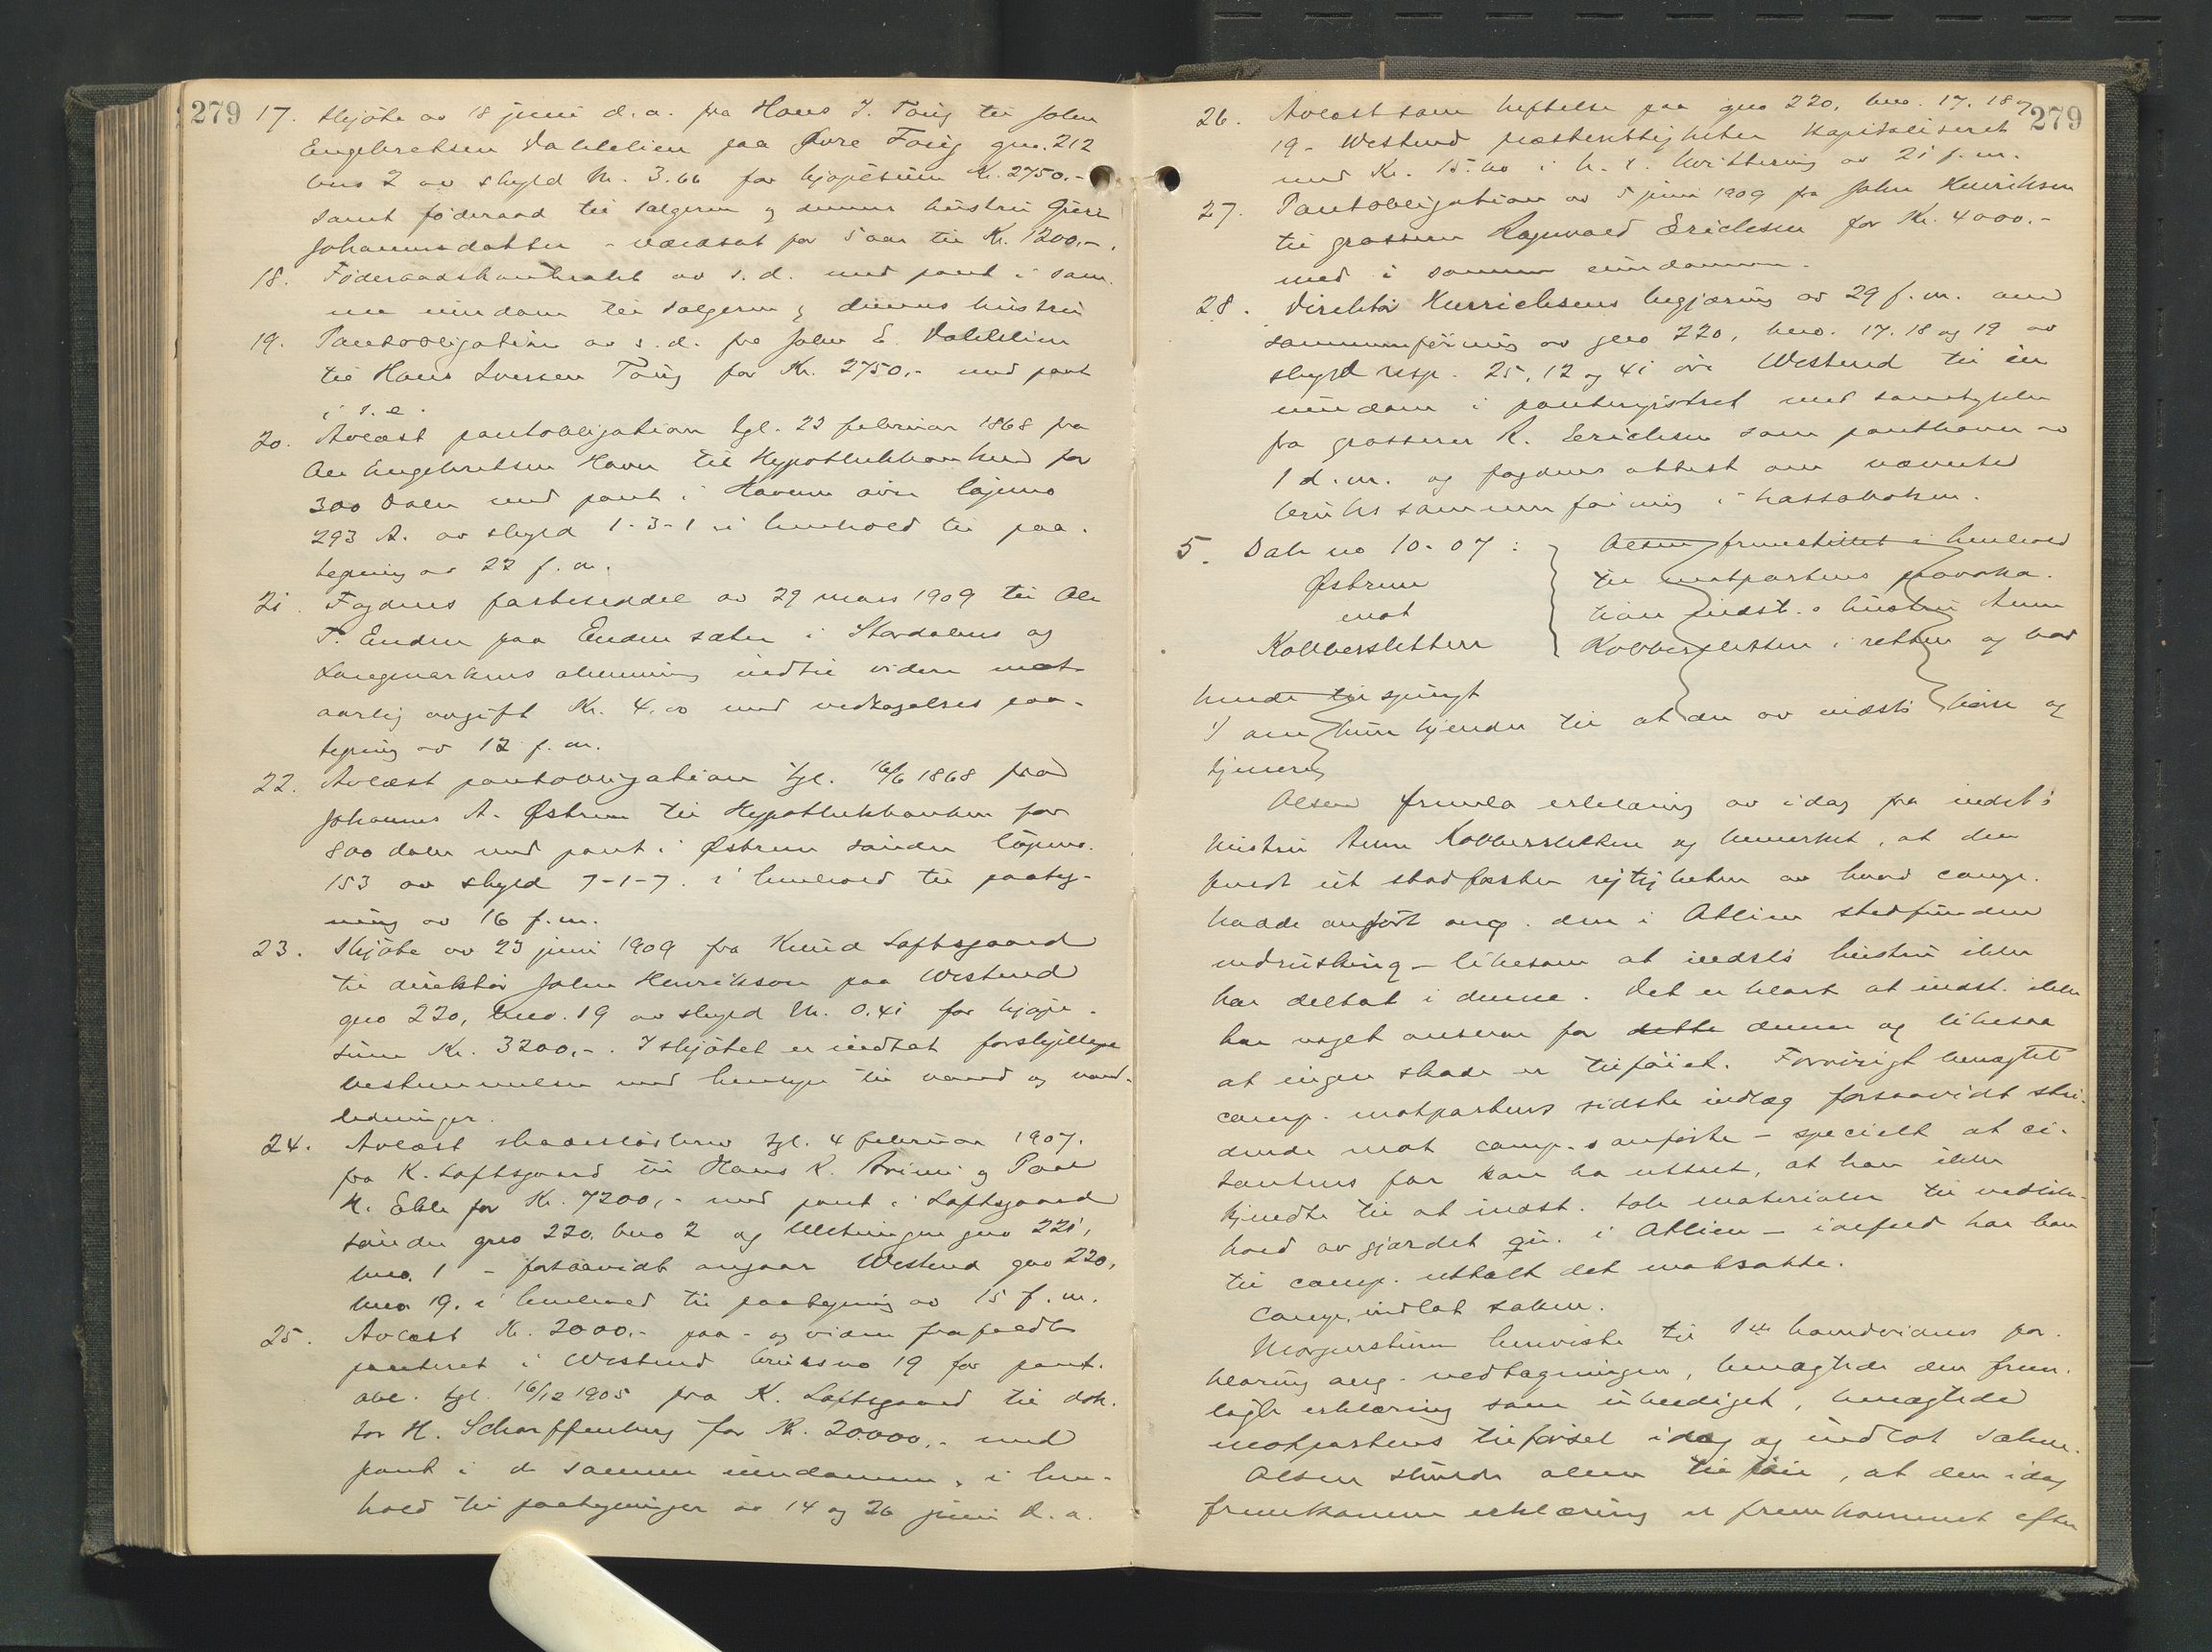 279
17. Skjöte av 18 juni d.a. fra Hans I. Tøig til John
Engebretsen Dahlelien paa Øvre Tøig gno. 212
bno 2 av skyld M. 3.66 for kjøpesum Kr. 2750.-
samt föderaad til sælgeren og dennes hustru Guri
Johannesdatter - værdsat for 5 aar til Kr. 1200.-.
18. Föderaadskontrakt av s.d. med pant i sam
me eiendom til sælgeren og dennes hustru
19. Pantobligation av s.d. fra John E. Dahlelien
til Hans Iversen Tøig for Kr. 2750.- med pant
i s.e.
20. Avlæst pantobligation tgl. 23 februar 1868 fra
Ole Engebretsen Haven til Hypothekbanken for
300 daler med pant i Haven övre löpeno
293 A. av skyld 1-3-1 i henhold til paa-
tegning av 22 f.m.
21. Fogdens fæsteseddel av 29 mars 1909 til Ole
T. Enden paa Enden sæter i Stordalens og
Langmarkens almenning indtil videre mot
aarlig avgift Kr. 4.00 med vedtagelses paa-
tegning av 12 f.m.
22. Avlæst pantobligation tgl. 16/6 1868 fra
Johannes A. Østrem til Hypothekbanken for
800 daler med pant i Østrem söndre löpeno.
153 av skyld 7-1-7. i henhold til paateg-
ning av 16 f.m.
23. Skjöte av 23 juni 1909 fra Knud Loftsgaard
til direktör John Henrikson paa Westend
gno 220, bno. 19 av skyld M. 0.41 for kjøpe-
sum Kr. 3200,-. I skjötet er indtat forskjellige
bestemmelser med hensyn til vand og vand-
ledninger.
24. Avlæst skadeslösbrev tgl. 4 februar 1907.
fra K. Loftsgaard til Hans K. Brimi og Paal
H. Ekle for Kr. 7200,- med pant i Loftsgaard
söndre gno 220, bno 2 og gno 221,
bno. 1 - forsaavidt angaar Westend gno 220,
bno 19. i henhold til paategning av 15 f.m.
25. Avlæst Kr. 2000.- paa- og videre frafaldt
panteret i Westend bruksno 19 for pant-
obl. tgl. 16/12 1905 fra K. Loftsgaard til dok-
tor H. Scharffenberg for Kr. 20.000,- med
pant i de samme eiendomme, i hen-
hold til paategninger av 14 og 26 juni d.a.
279
26. Avlæst som heftelse paa gno 220, bno. 17. 18 og
19 - Westend præsterettigheter kapitaliseret
med Kr. 15.40 i h.t. kvittering av 21 f.m.
27. Pantobligation av 5 juni 1909 fra John Henriksen
til grosserer Ragnvald Erichsen for Kr. 4000.-
med i samme eiendomme.
28. Direktör Henrichsens begjæring av 29 f.m. om
sammenföining av gno 220, bno. 17. 18 og 19 av
skyld resp. 25, 12 og 41 öre Westend til én
eiendom i panteregistret med samtykke
fra grosserer R. Erichsen som panthaver av
1 d.m. og fogdens attest om nævnte
bruks sammenföining i kassaboken.
5. Sak no 10-07:
Østrem
mot
Kobbersletten
Olsen fremstillet i henhold
til motpartens provoka-
tion indst.s hustru Anne
Kobbersletten i retten og bad
hende tilspurgt
1) om hun kjender til at den av indst.s höns og
tjenere
Olsen fremla erklæring av idag fra indst.s
hustru Anne Kobbersletten og bemerket, at den
fuldt ut stadfæster rigtigheten av hvad comp.
hadde anfört ang. den i Atlien stedfundne
indrustning - likesom at indst.s hustru ikke
har deltat i denne. Det er klart at indst. ikke
har noget ansvar for dette denne og likesaa
at ingen skade er tilföiet. Forövrigt benegtet
comp. motpartens sidste indlæg forsaavidt stri-
dende mot comp.s anförte - specielt at ci-
tantens far kan ha uttalt, at han ikke
kjendte til at indst. tok materialer til vedlike-
hold av gjærdet qu. i Atlien - ialfald har han
til comp. uttalt det motsatte.
Comp. indlot saken.
Morgenstierne henviste til 1ste hovedvidnes for-
klaring ang. vedtagningen, benegtede den frem-
lagte erklæring som ubeediget, benegtede
motpartens tilförsel idag og indlot saken.
Olsen skulde alene tilföie, at den idag
fremkomne erklæring er fremkommet efter